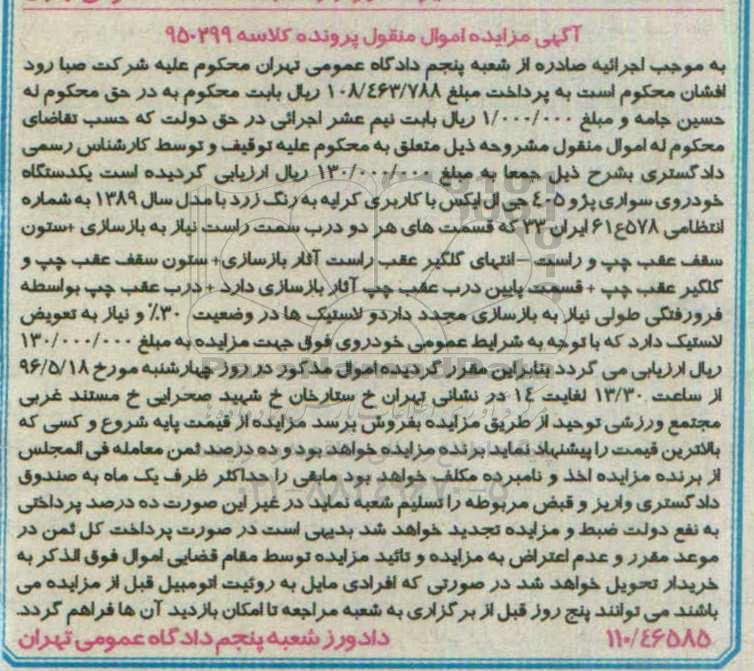 آگهی مزایده اموال منقول پرونده کلاسه ۹۵۰۳۹۹
به موجب اجرائیه صادره از شعبه پنجم دادگاه عمومی تهران محکوم علیه شرکت صبا رود
افشان محکوم است به پرداخت مبلغ ۱۰۸/٤۶۳/۷۸۸ ریال بابت محکوم به در حق محکوم له
حسین جامه و مبلغ ۱/۰۰۰/۰۰۰ ریال بابت نیم عشر اجرائی در حق دولت که حسب تقاضای
محکوم له اموال منقول مشروحه ذیل متعلق به محکوم علیه توقیف و توسط کارشناس رسمی
دادگستری بشرح ذیل جمعا به مبلغ ۱۳۰/۰۰۰/۰۰۰ ریال ارزیابی گردیده است یکدستگاه
خودروی سواری پژو ٤۰۵ جی ال ایکس با کاربری کرایه به رنگ زرد با مدل سال ۱۳۸۹ به شماره
انتظامی ۵۷۸ع۶۱ ایران ۳۳ که قسمت های هر دو درب سمت راست نیاز به بازسازی +ستون
سقف عقب چپ و راست –انتهای گلگیر عقب راست آثار بازسازی+ ستون سقف عقب چپ و
گلگیر عقب چپ + قسمت پایین درب عقب چپ آثار بازسازی دارد + درب عقب چپ بواسطه
فرورفتگی طولی نیاز به بازسازی مجدد داردو لاستیک ها در وضعیت ۳۰٪ و نیاز به تعویض
لاستیک دارد که با توجه به شرایط عمومی خودروی فوق جهت مزایده به مبلغ ۱۳۰/۰۰۰/۰۰۰
ریال ارزیابی می گردد بنابراین مقرر گردیده اموال مذکور در روز چهارشنبه مورخ ۹۶/۵/۱۸
از ساعت ۱۳/۳۰ لغایت ۱٤ در نشانی تهران خ ستارخان خ شهید صحرایی خ مستند غربی
مجتمع ورزشی توحید از طریق مزایده بفروش برسد مزایده از قیمت پایه شروع و کسی که
بالاترین قیمت را پیشنهاد نماید برنده مزایده خواهد بود و ده درصد ثمن معامله فی المجلس
از برنده مزایده اخذ و نامبرده مکلف خواهد بود مابقی را حداکثر ظرف یک ماه به صندوق
دادگستری واریز و قبض مربوطه را تسلیم شعبه نماید در غیر این صورت ده درصد پرداختی
به نفع دولت ضبط و مزایده تجدید خواهد شد بدیهی است در صورت پرداخت کل ثمن در
موعد مقرر و عدم اعتراض به مزایده و تائید مزایده توسط مقام قضایی اموال فوق الذکر به
خریدار تحویل خواهد شد در صورتی که افرادی مایل به روئیت اتومبیل قبل از مزایده می
باشند می توانند پنج روز قبل از برگزاری به شعبه مراجعه تا امکان بازدید آن ها فراهم گردد.
۱۱۰/٤۶۵۸۵ دادورز شعبه پنجم دادگاه عمومی تهران